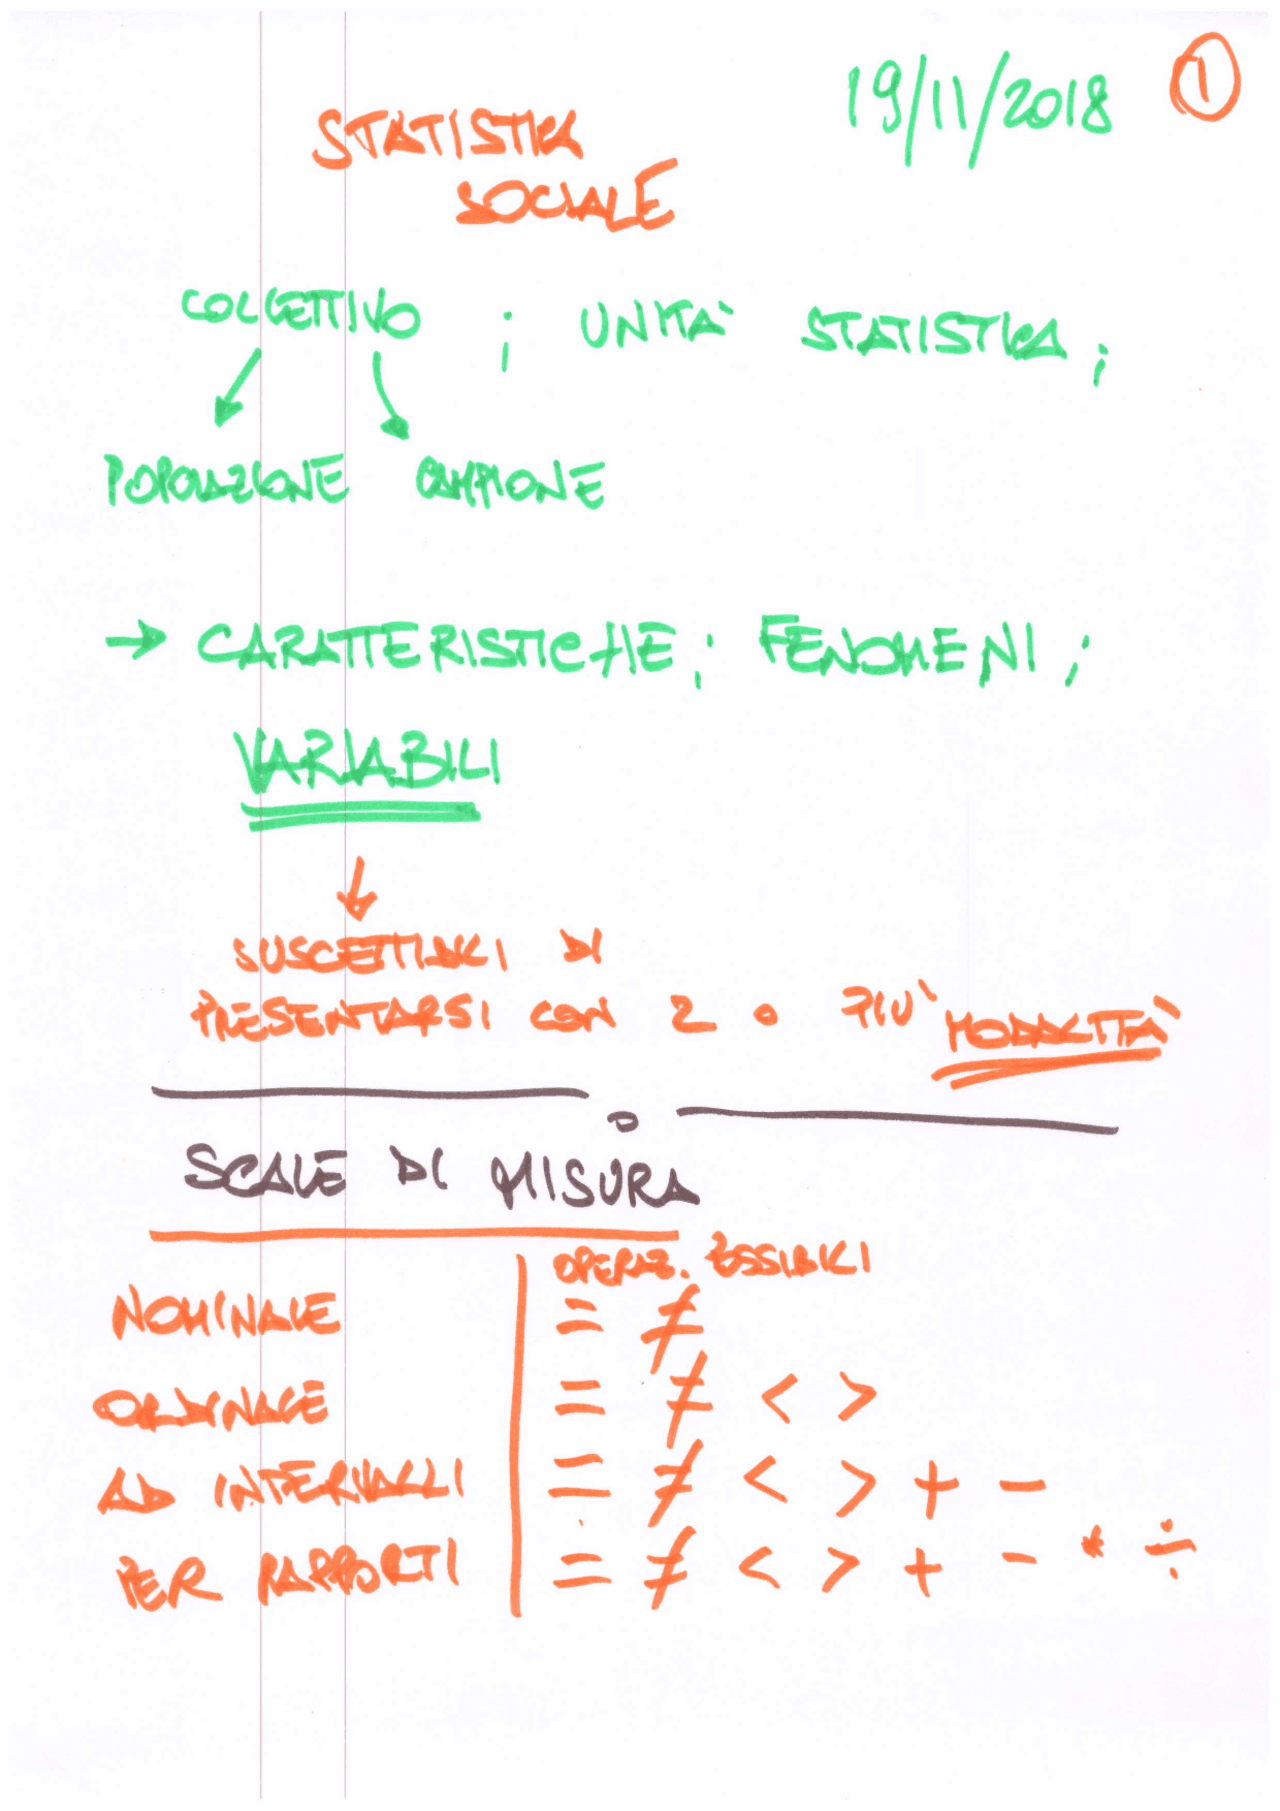 19/11/2018 1
STATISTICA
SOCIALE
COLLETTIVO ; UNITA' STATISTICA ;
POPOLAZIONE CAMPIONE
→ CARATTERISTICHE ; FENOMENI ;
VARIABILI
SUSCETTIBILI DI
PRESENTARSI CON 2 O PIU' MODALITA'
SCALE DI MISURA
OPERAZ. POSSIBILI
NOMINALE = ≠
ORDINALE = ≠ < >
AD INTERVALLI = ≠ < > + -
PER RAPPORTI = ≠ < > + - * ÷